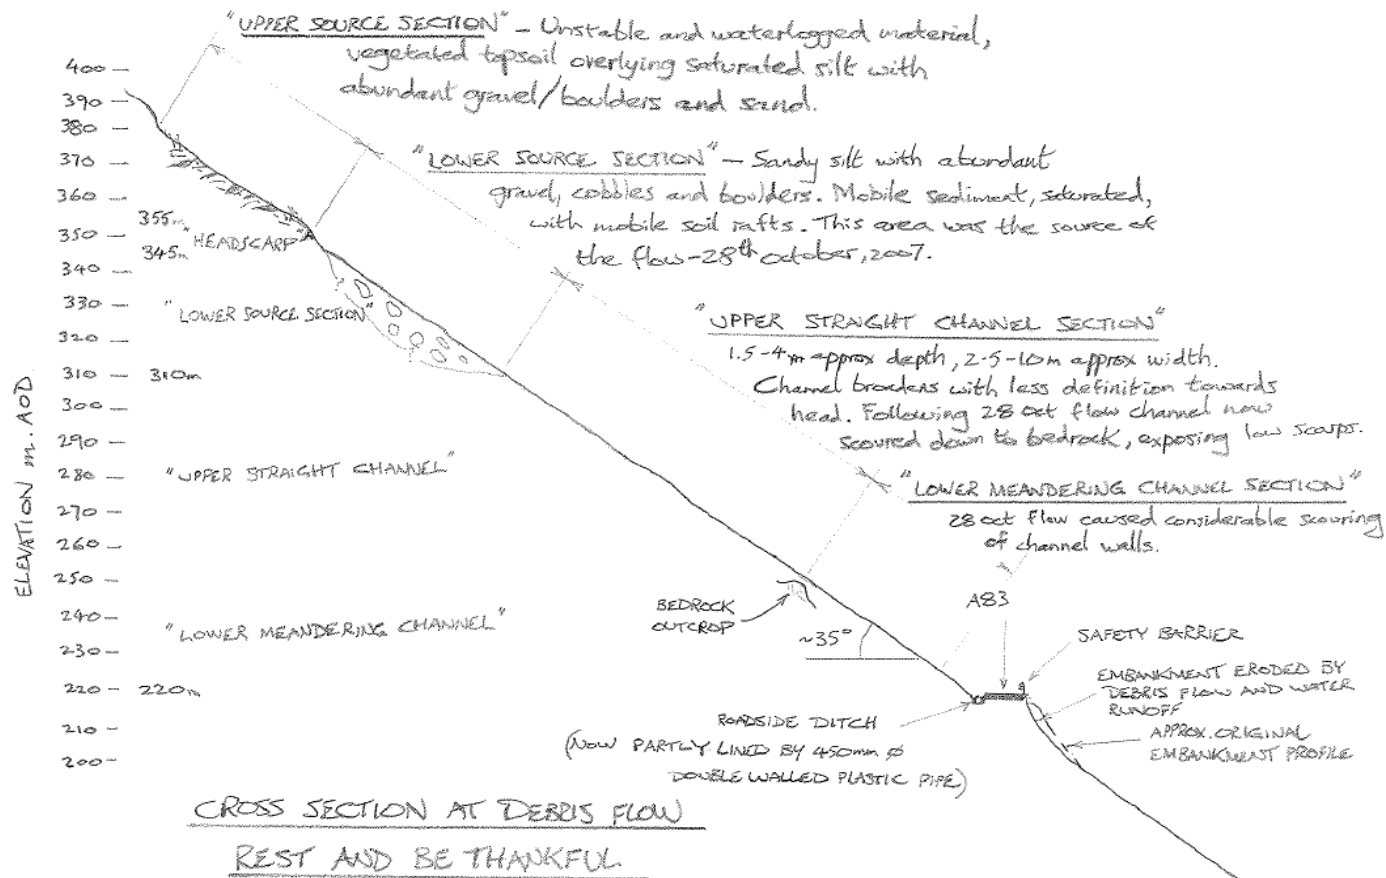 "UPPER SOURCE SECTION" - Unstable and waterlogged material,
vegetated topsoil overlying saturated silt with
abundant gravel/boulders and sand.
"LOWER SOURCE SECTION" - Sandy silt with abundant
gravel, cobbles and boulders. Mobile sediment, saturated,
with mobile soil rafts. This area was the source of
the flow - 28th October, 2007.
"UPPER STRAIGHT CHANNEL SECTION"
1.5-4m approx depth, 2-5-10m approx width.
Channel broadens with less definition towards
head. Following 28 Oct flow channel now
scoured down to bedrock, exposing low scarps.
"LOWER MEANDERING CHANNEL SECTION"
28 Oct flow caused considerable scouring
of channel walls.
ELEVATION m. AOD
400
390
380
370
360
355m
350
"HEADSCARP"
345m
340
330
"LOWER SOURCE SECTION"
320
310 310m
300
290
280 "UPPER STRAIGHT CHANNEL"
270
260
250
240
"LOWER MEANDERING CHANNEL"
230
220 220m
210
200
BEDROCK
OUTCROP
~35°
A83
SAFETY BARRIER
EMBANKMENT ERODED BY
DEBRIS FLOW AND WATER
RUNOFF
APPROX. ORIGINAL
EMBANKMENT PROFILE
ROADSIDE DITCH
(NOW PARTLY LINED BY 450mm Ø
DOUBLE WALLED PLASTIC PIPE)
CROSS SECTION AT DEBRIS FLOW
REST AND BE THANKFUL